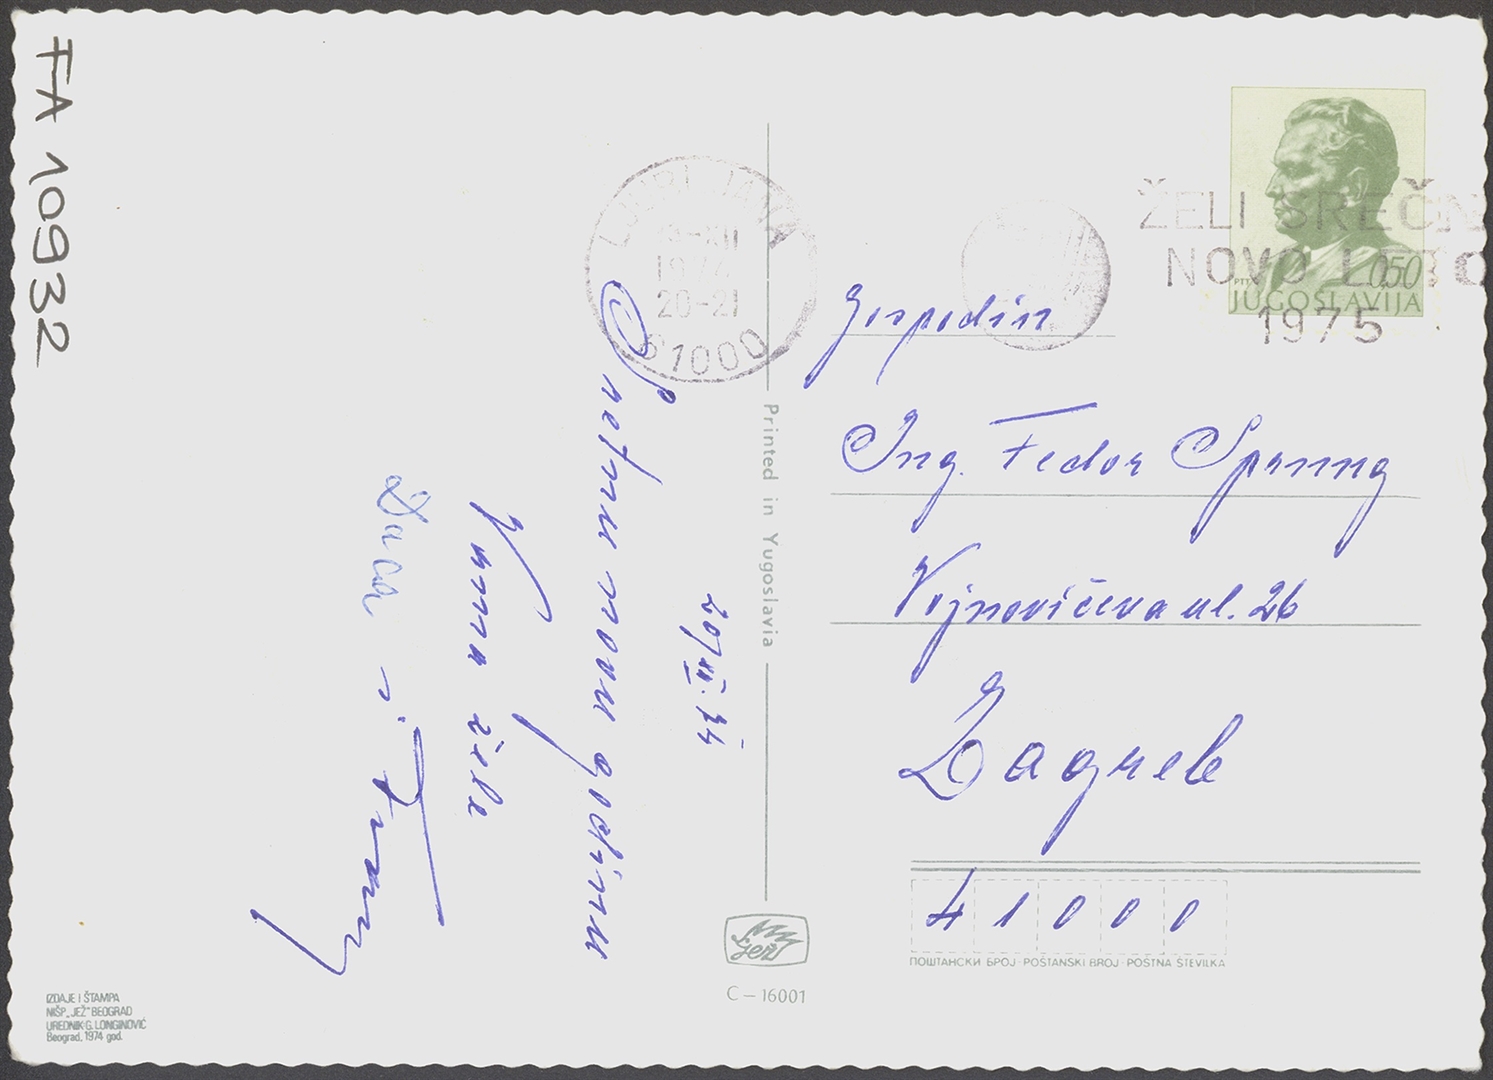 FA 10932
LJUBLJANA
1974
20-21
61000
ŽELI SREČN
NOVO LETO
1975
PTT
0.50
JUGOSLAVIJA
20/XII. 74
Sretnu novu godinu
Vama žele
Daca i
Gospodin
Ing. Fedor Sprung
Vojnovićeva ul. 26
Zagreb
41000
ПОШТАНСКИ БРОЈ · POŠTANSKI BROJ · POŠTNA ŠTEVILKA
Printed in Yugoslavia
jež
C – 16001
IZDAJE I ŠTAMPA
NIŠP „JEŽ" BEOGRAD
UREDNIK: G. LONGINOVIĆ
Beograd, 1974 god.